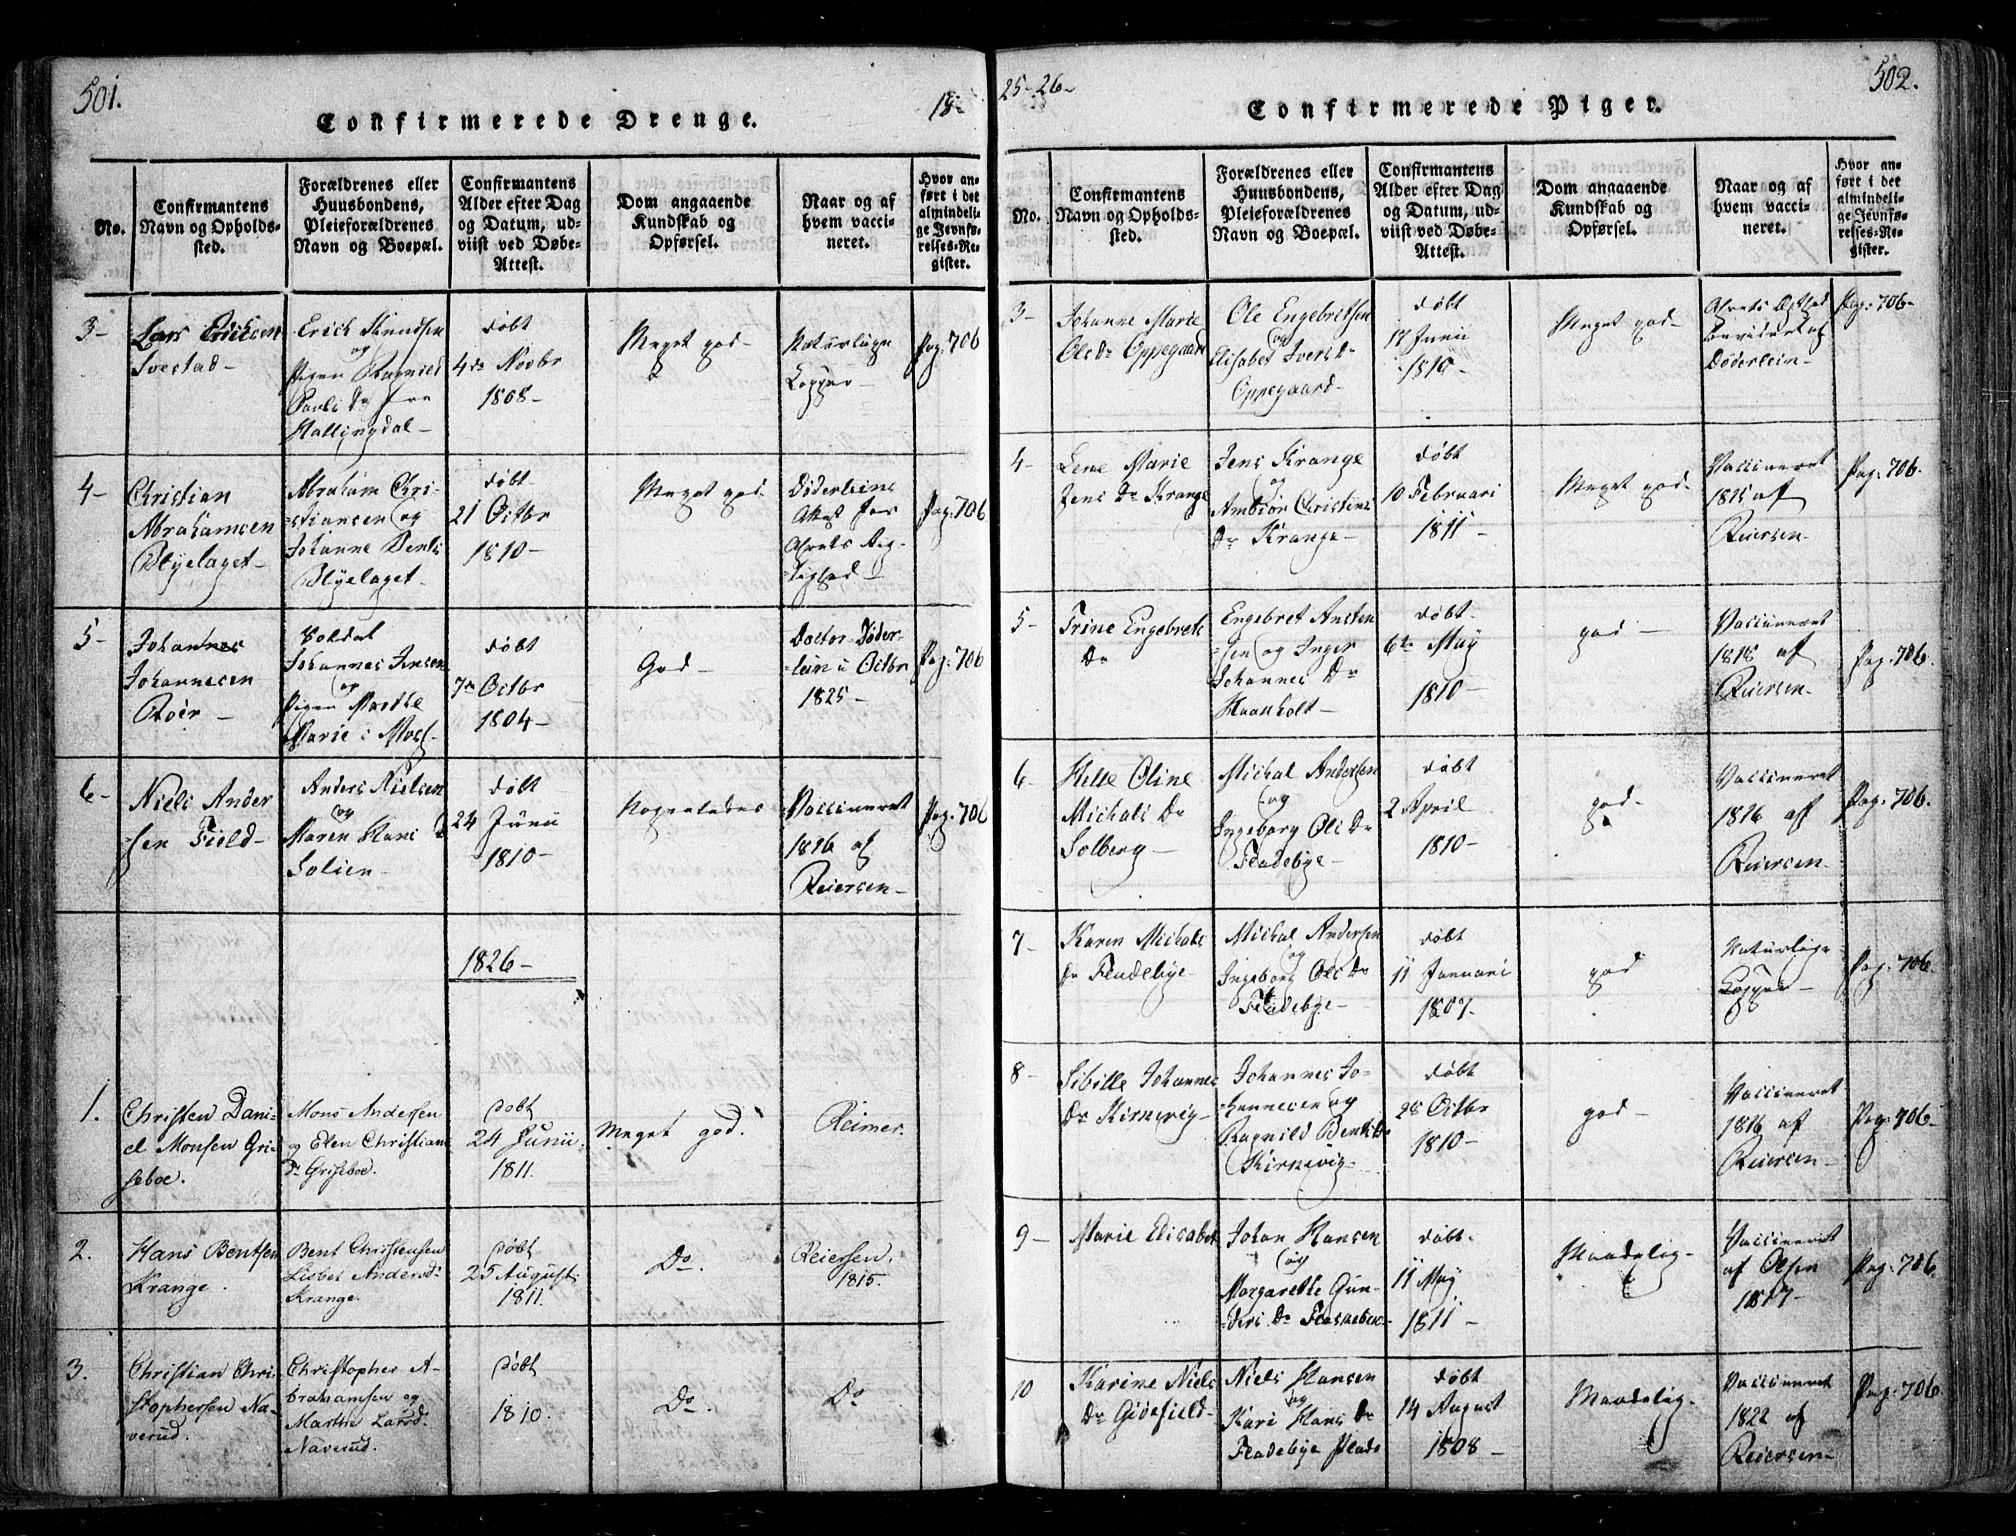 501.
Confirmerede Drenge.
18
No.
Confirmantens Navn og Opholds-sted.
Forældrenes eller Huusbondens, Pleieforældrenes Navn og Boepæl.
Confirmantens Alder efter Dag og Datum, ud-viist ved Døbe-Attest.
Dom angaaende Kundskab og Opførsel.
Naar og af hvem vacci-neret.
Hvor an-ført i det almindeli-ge Jevnfø-relses-Re-gister.
3-
Lars Ericksen
Svestad-
Erich Knudsen
og
Pigen Ragnild
Pauls Dr fra
Hallingdal-
døbt
4de Novbr
1808-
Meget god-
Naturlige
Kopper-
Pag. 706
4-
Christian
Abrahamsen
Blyelaget-
Abraham Chri-
stiansen og
Johanne Bents
Blyelaget-
døbt-
21 Octbr
1810-
Meget god-
Døderleins
Attest for
Pag. 706
5-
Johannes
Johannesen
Roer-
Soldat
Johannes Jensen
og
Pigen Marthe
Marie i Moss-
døbt
7de Octbr
1804-
God-
Doctor Døder-
lein i Octbr
1825-
Pag. 706
6-
Niels Ander
sen Field-
Anders Nielsen
og
Maren Hans D
Solien-
døbt
24 Junii
1810-
Nogenledes
Vaccineret
1816 af
Reiersen-
Pag. 706
1826-
1.
Christen Dani-
el Monsen Gri-
seboe.
Mons Andersen
og Elen Christians
Dr Griseboe.
Døbt
24 Junii
1811.
Meget god.
Reimer.
2.
Hans Bentsen
Krange.
Bent Christensen
Lisbet Andersd.
Krange.
Døbt
25 August
1811.
Do.
Reiersen.
1815.
3.
Christian Chri-
stophersen Na-
verud.
Christopher A-
brahamsen og
Marthe Larsd.
Naverud.
Døbt
1810.
Do.
Do
25-26-
502.
Confirmerede Piger.
No.
Confirmantens Navn og Opholds-sted.
Forældrenes eller Huusbondens, Pleieforældrenes Navn og Boepæl.
Confirmantens Alder efter Dag og Datum, ud-viist ved Døbe-Attest.
Dom angaaende Kundskab og Opførsel.
Naar og af hvem vacci-neret.
Hvor an-ført i det almindeli-ge Jevnfø-relses-Re-gister.
3-
Johanne Marie
Ols Dr Oppegaard
Ole Engebretsen
og
Elisabet Ivers Dr
Oppegaard-
døbt
17 Junii
1810-
Meget god-
af
Døderlein-
Pag: 706-
4-
Lene Marie
Jens Dr Krange
Jens Krange
og
Ambiør Christens
Dr Krange-
døbt
10 Februari
1811-
Meget god-
Vaccineret
1815 af
Reiersen-
Pag. 706.
5-
Trine Engebrets
Dr
Engebret Ansten
sen og Inger
Johannes Dr
Haanholt-
døbt-
6te May
1810-
god-
Vaccineret
1818 af
Reiersen-
Pag. 706.
6-
Helle Oline
Michals Dr
Solberg-
Michal Andersen
og
Ingeborg Ols Dr
Fladebye-
døbt
2 April
1810-
god-
Vaccineret
1816 af
Reiersen-
Pag. 706.
7-
Karen Michals
Dr Fladebye-
Michal Andersen
og
Ingeborg Ols Dr
Fladebye-
døbt
11 Januari
1807.
god
Naturlige
Kopper-
Pag. 706.
8-
Sibille Johannes
Dr Kirnevig-
Johannes Jo-
hannesen og
Ragnild Bents Dr
Kirnevig-
døbt
28 Octbr
1810-
god-
Vaccineret
1816 af
Reiersen-
Pag. 706-
9-
Marie Elisabet
Johan Hansen
og
Margarethe Gun-
ders Dr Flaskebek-
døbt-
11 May
1811-
Maadelig-
Vaccineret
af Olsen
1817-
Pag. 706.
10
Karine Niels
Dr Gidefield-
Niels Hansen
og
Kari Hans Dr
Fladebye Plads
døbt
14 August
1808-
Maadelig-
Vaccineret
1822 af
Reiersen-
Pag. 706.